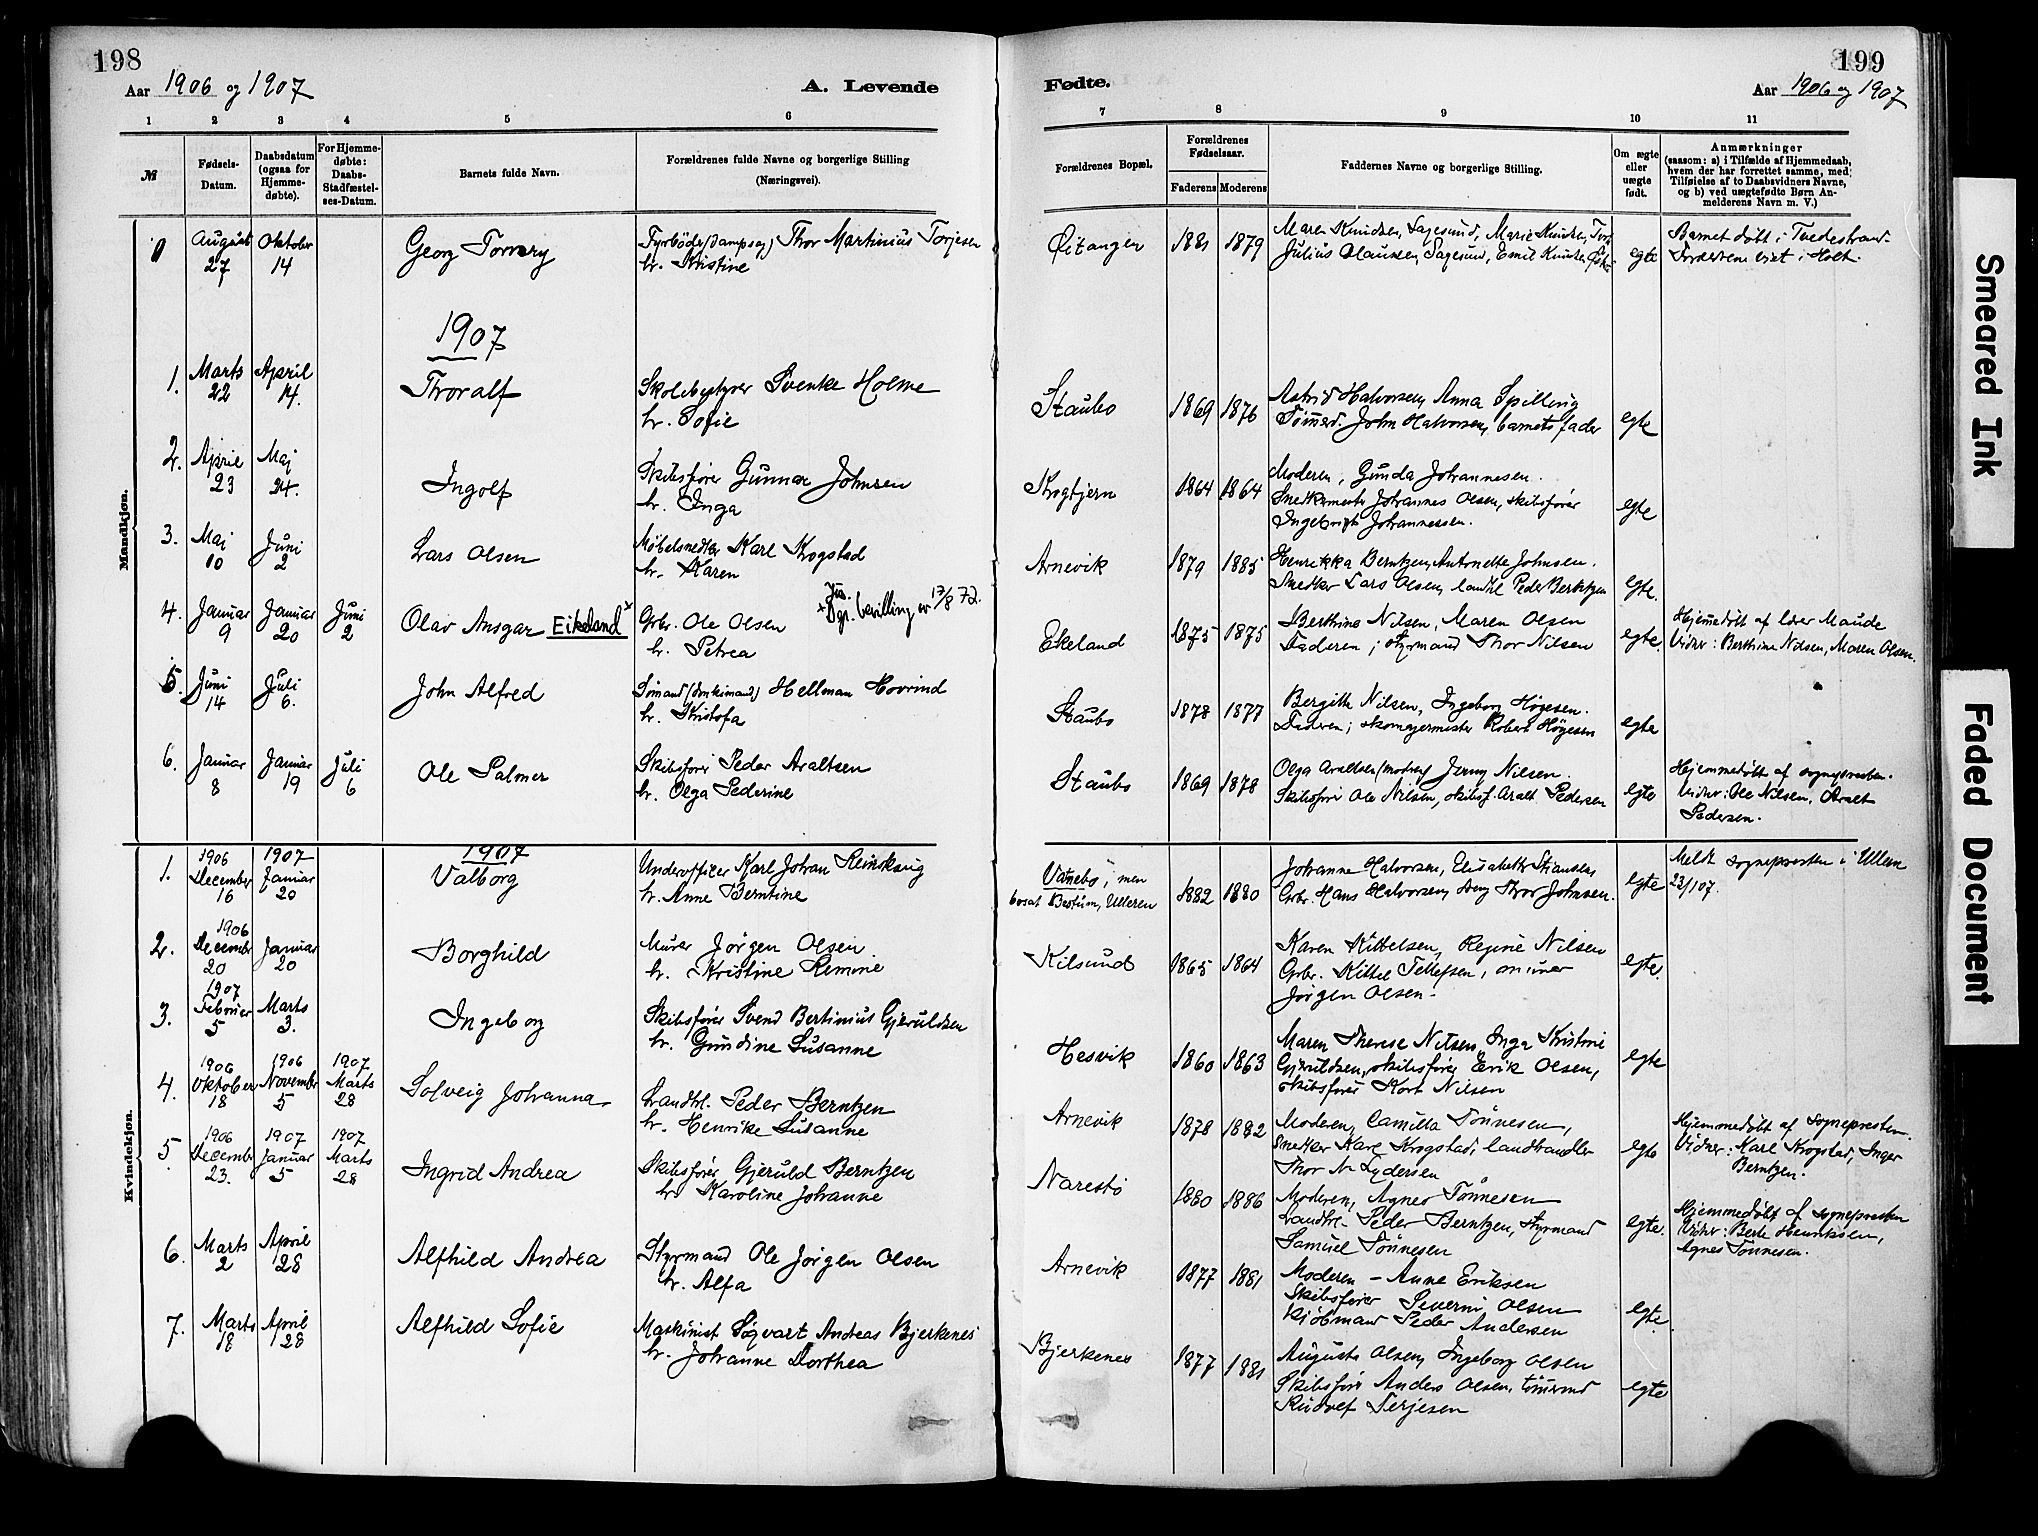 198
Aar 1906 og 1907
A. Levende
1 2 3 4 5 6
№
Fødsels-Datum.
Daabsdatum (ogsaa for Hjemme-døbte).
For Hjemme-døbte: Daabs-Stadfæstel-ses-Datum.
Barnets fulde Navn.
Forældrenes fulde Navne og borgerlige Stilling (Næringsvei).
Mandkjøn.
August 27 Oktober 14 Georg
Thor Martinius Torjesen
hr. Kristine
1907
1. Marts 22 April 14. Thoralf
Skolebestyrer Svenke Holme
hr. Sofie
2. April 23 Maj 24. Ingolf
Skibsfører Gunnar Johnsen
hr. Inga
3. Maj 10 Juni 2 Lars Olsen
Møbelsnedker Karl Krogstad
hr. Karen
4. Januar 9 Januar 20 Juni 2 Olav Ansgar Eikeland x
Grbr. Ole Olsen
hr. Petrea
x Jus. Dp. bevilling av 17/8 72.
5. Juni 14 Juli 6. John Alfred
Sømand Hellman Hovrind
hr. Kristofa
6. Januar 8 Januar 19 Juli 6 Ole Palmer
Skibsfører Peder Araltsen
hr. Olga Pederine
Kvindekjøn.
1907
1. 1906 December 16 1907 Januar 20 Valborg
Underofficer Karl Johan
hr. Anne Berntine
2. 1906 December 20 Januar 20 Borghild
Murer Jørgen Olsen
hr. Kristine
3. 1907 Februer 5 Marts 3. Ingeborg
Skibsfører Svend Bertinius Gjeruldsen
hr. Gundine Susanne
4. 1906 Oktober 18 1906 Novembr 5 1907 Marts 28 Solveig Johanna
Landhl. Peder Berntzen
hr. Henrike Susanne
5 1906 December 23. 1907 Januar 5 1907 Marts 28 Ingrid Andrea
Skibsfører Gjeruld Berntzen
hr. Karoline Johanne
6. Marts 2 April 28 Alfhild Andrea
Styrmand Ole Jørgen Olsen
hr. Alfa
7. Marts 18 April 28 Alfhild Sofie
Maskinist Sigvart Andreas Bjerkenes
hr. Johanne Dorthea
199
Fødte.
Aar 1906 og 1907
7 8 9 10 11
Forældrenes Bopæl.
Forældrenes Fødselsaar.
Faderens Moderens
Faddernes Navne og borgerlige Stilling.
Om ægte eller uægte født.
Anmærkninger
(saasom: a) i Tilfælde af Hjemmedaab,
hvem der har forrettet samme, med
Tilføielse af to Daabsvidners Navne,
og b) ved uægtefødte Børn An-
melderens Navn m. V.)
1881 1879
Maren Knudsen, Sagesund, Marie Knudsen,
Julius Clausen, Sagesund, Emil Knudsen
egte
Barnet døbt i Tvedestrand.
Forældrene viet i Holt.
Staubo 1869 1876
Astrid Halvorsen, Anna Spilling
Tømmerd. John Halvorsen, barnets fader
egte
Krogbjern 1864 1864
Moderen, Gunda Johannesen.
Snedkermester Johannes Olsen, skibsfører
Ingebrigt Johannessen.
egte
Arnevik 1879 1885
Henrikka Berntzen, Antonette Johnsen.
Snedker Lars Olsen, landhl Peder Berntzen
egte.
Ekeland 1875 1875
Berthine Nilsen, Maren Olsen
Faderen; styrmand Thor Nilsen
egte.
Hjemmedøbt af lærer Maude
Vidner: Berthine Nilsen, Maren Olsen.
Staubo 1878 1877
Bergitte Nilsen, Ingeborg Høgesen.
Faderen; skomagermester Robert Høgesen
egte
Staubo 1869 1878
Olga Araltsen (moderen) Jenny Nilsen.
Skibsfører Ole Nilsen, skibsf. Aralt Pedersen
egte
Hjemmedøbt af sognepresten.
Vidner: Ole Nilsen, Aralt
Pedersen.
Vanebo, men
bosat Bestum, Ulleren
1882 1880
Johanne Halvorsen, Elisabeth
Grbr. Hans Halvorsen, Thor Johnsen.
egte
Meldt sognepresten i Ullern
23/1 07.
Kilsund 1865 1864
Karen Kittelsen, Regine Nilsen
Grbr. Kittel Tellefsen, murer
Jørgen Olsen.
egte.
Hesvik 1860 1863
Maren Therese Nilsen, Inga Kristine
Gjeruldsen, skibsfører Erik Olsen,
skibsfører Kort Nilsen
egte
Arnevik 1878 1882
Moderen, Camilla Tønnesen,
Snedker Karl Krogstad, landhandler
Thor N. Lydersen
egte
Hjemmedøbt af Sognepresten.
Vidner: Karl Krogstad, Inger
Berntzen.
Narestø 1880 1886
Moderen, Agnes Tønnesen
Landhl. Peder Berntzen, styrmand
Samuel Tønnesen
egte.
Hjemmedøbt af sognepresten
Vidner: Berte Henriksen,
Agnes Tønnesen.
Arnevik 1877 1881
Moderen – Anne Eriksen
Skibsfører Severin Olsen
Kjøbmand Peder Andersen
egte.
Bjerkenes 1877 1881
Augusta Olsen, Ingeborg Olsen
Skibsfører Anders Olsen, tømmermd
Rudolf Terjesen
egte
Smeared Ink
Faded Document